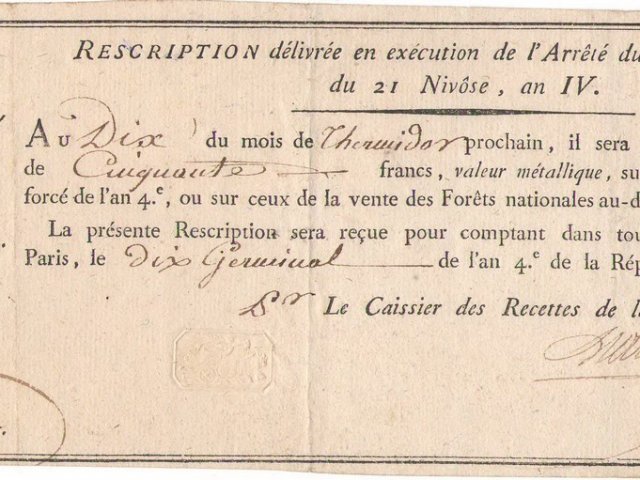 RESCRIPTION délivrée en exécution de l'Arrêté du
du 21 Nivôse, an IV.
AU Dix du mois de Thermidor prochain, il sera
de Cinquante francs, valeur métallique, su
forcé de l'an 4.e, ou sur ceux de la vente des Forêts nationales au-d
La présente Rescription sera reçue pour comptant dans tou
Paris, le dix Germinal de l'an 4.e de la Rép
Pr Le Caissier des Recettes de l